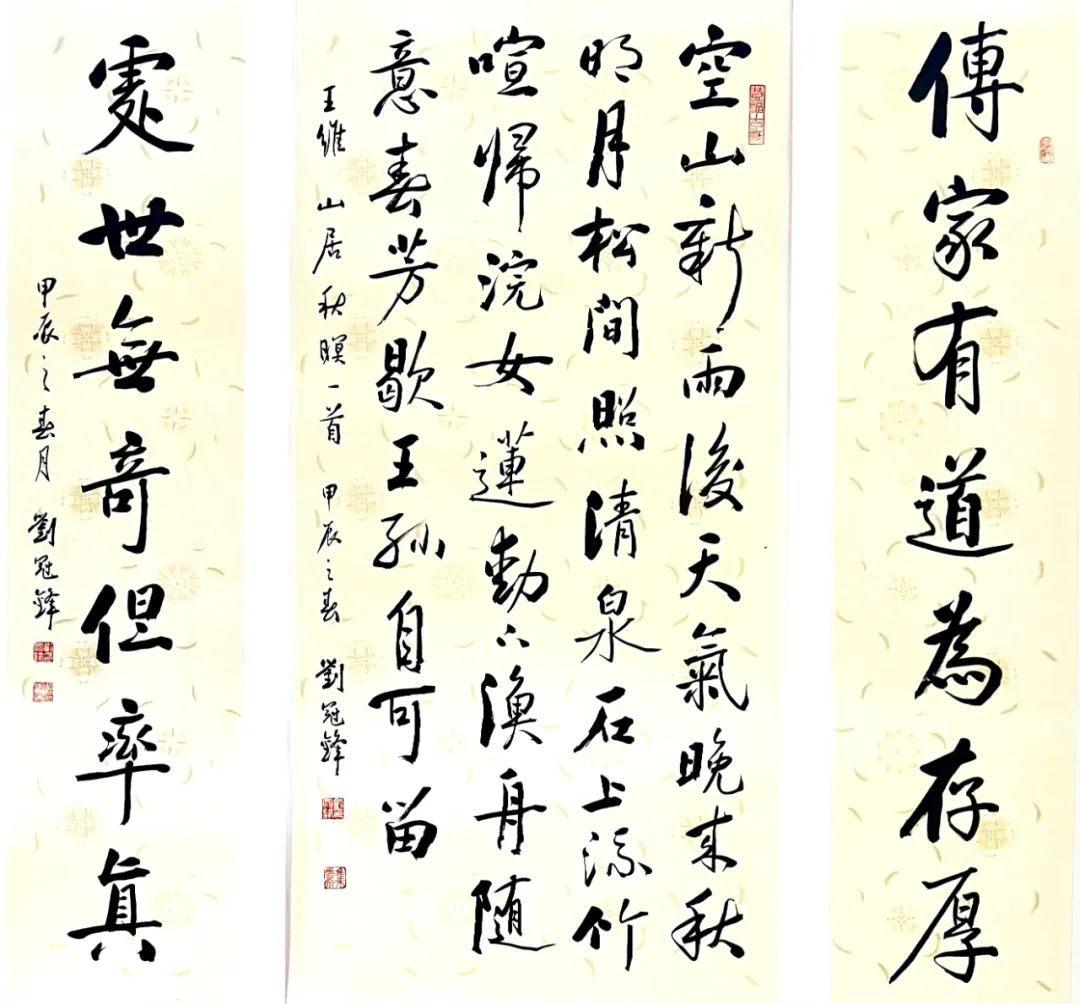 傳家有道為存厚
空山新雨後天氣晚來秋
明月松間照清泉石上流竹
喧歸浣女蓮動下漁舟随
意春芳歇王孫自可留
王維 山居秋暝一首 甲辰之春 劉冠鋒
處世無奇但率真
甲辰之春月 劉冠鋒